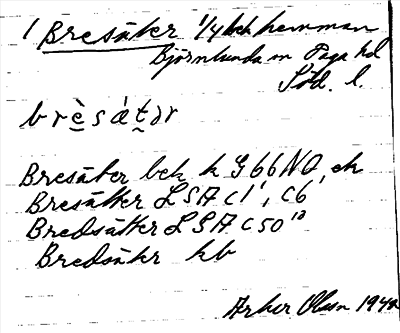 1 Bresäter 1/4 bek hemman
Björnlunda sn Daga hd
Söd. l.
brèsǽtər
Bresäter bek k G 66 NO, ek
Bresätter LSA C1', C6
Bredsätter LSA C50
Bredsäter kb
Olsson 194